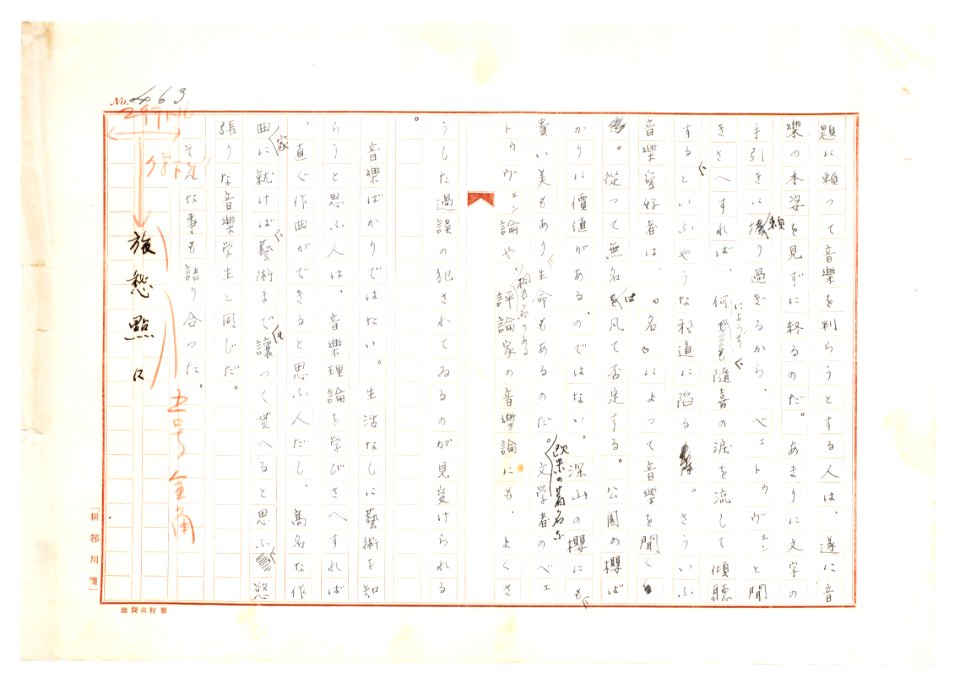 No. 63
題に頼つて音樂を判らうとする人は、遂に音
樂の本姿を見ずに終るのだ。あまりに文字の
手引きに頼り過ぎるから、ベエトウヴェンと聞
きさへすれば、何によらず隨喜の涙を流して傾聽
するといふやうな邪道に陷る。さういふ
音樂愛好者は、『名』によつて音樂を聞く
。從つて無名は凡て否定する。公園の櫻ば
かりに價値があるのではない。深山の櫻にも
貴い美もあり生命もあるのだ。歐米の著名な文學者のベエ
トウヴェン論や、相當名のある評論家の音樂論にも、よくさ
うした過誤の犯されてゐるのが見受けられる
。
音樂ばかりではない。生活なしに藝術を知
らうと思ふ人は、音樂理論を学びさへすれば
、直ぐ作曲ができると思ふ人だし、高名な作
曲家に就けば藝術まで讓つて貰へると思ふ慾
張りな音樂学生と同じだ。
そんな事も語り合つた。
2行トル
旅愁點口
五号全角
「耕筰用箋」